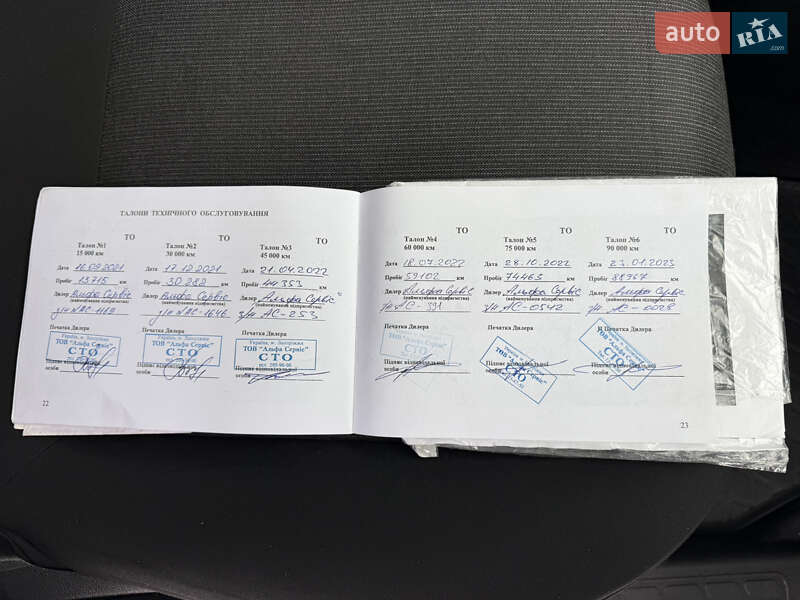 auto RIA .com
ТАЛОНИ ТЕХНІЧНОГО ОБСЛУГОВУВАННЯ
ТО
Талон №1
15 000 км
Дата 16.09.2021
Пробіг 13715 км
Дилер Альфа Сервіс
(найменування підприємства)
Печатка Дилера
Україна, м. Запоріжжя
ТОВ "Альфа Сервіс"
СТО
Підпис відповідальної
особи
ТО
Талон №2
30 000 км
Дата 17.12.2021
Пробіг 30 282 км
Дилер Альфа Сервіс
(найменування підприємства)
Печатка Дилера
Україна, м. Запоріжжя
ТОВ "Альфа Сервіс"
СТО
Підпис відповідальної
особи
ТО
Талон №3
45 000 км
Дата 21.04.2022
Пробіг 44 353 км
Дилер Альфа Сервіс
(найменування підприємства)
з/н АС-253
Печатка Дилера
Україна, м. Запоріжжя
ТОВ "Альфа Сервіс"
СТО
Підпис відповідальної
особи
22
ТО
Талон №4
60 000 км
Дата 18.07.2022
Пробіг 59102 км
Дилер Альфа Сервіс
(найменування підприємства)
Печатка Дилера
ТОВ "Альфа Сервіс"
СТО
Підпис відповідальної
особи
ТО
Талон №5
75 000 км
Дата 28.10.2022
Пробіг 74463 км
Дилер Альфа Сервіс
(найменування підприємства)
з/н АС-0542
Печатка Дилера
СТО
Підпис відповідальної
особи
ТО
Талон №6
90 000 км
Дата 23.01.2023
Пробіг км
Дилер Альфа Сервіс
(найменування підприємства)
з/н АС-0028
Печатка Дилера
СТО
Підпис відповідальної
особи
23